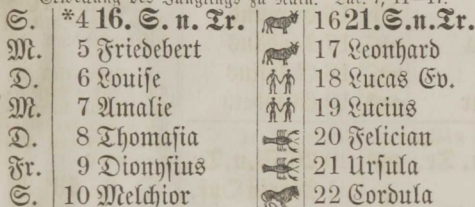 S. *4 16. S. n. Tr. 16 21. S. n. Tr.
M. 5 Friedebert 17 Leonhard
D. 6 Louise 18 Lucas Ev.
M. 7 Amalie 19 Lucius
D. 8 Thomasia 20 Felician
Fr. 9 Dionysius 21 Ursula
S. 10 Melchior 22 Cordula